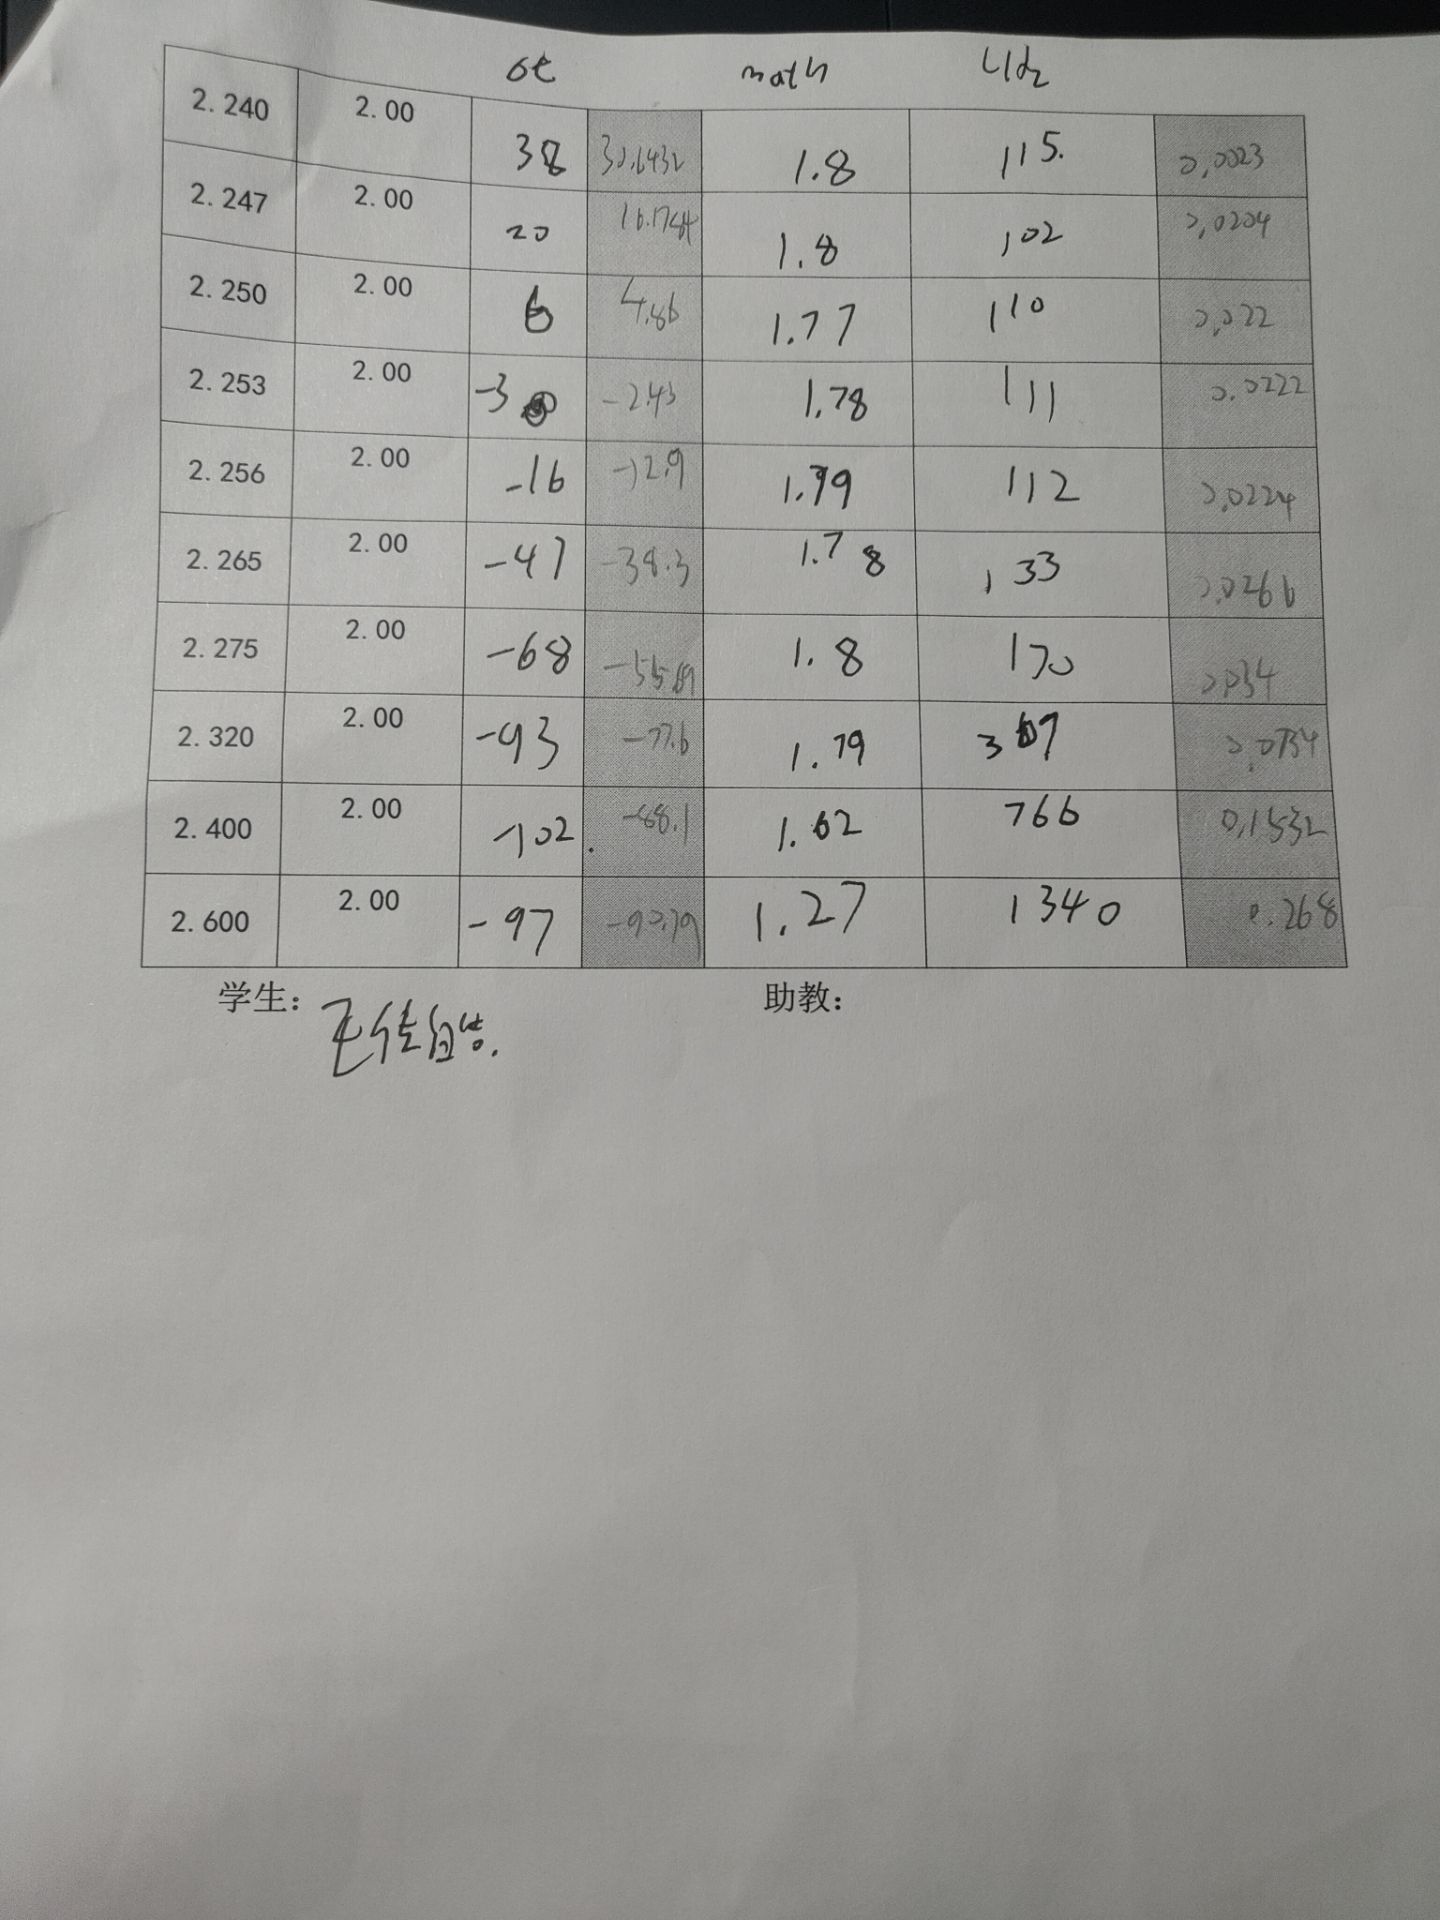 δt math
2.240 2.00 38 30.6432 1.8 115. 0.0023
2.247 2.00 20 16.1784 1.8 102 0.0204
2.250 2.00 6 4.86 1.77 110 0.022
2.253 2.00 -3 -2.43 1.78 111 0.0222
2.256 2.00 -16 -12.9 1.79 112 0.0224
2.265 2.00 -47 -38.3 1.78 133 0.0266
2.275 2.00 -68 1.8 170 0.034
2.320 2.00 -93 -77.6 1.79 367 0.0734
2.400 2.00 -102. -88.1 1.62 766 0.1532
2.600 2.00 -97 -90.79 1.27 1340 0.268
学生： 助教：